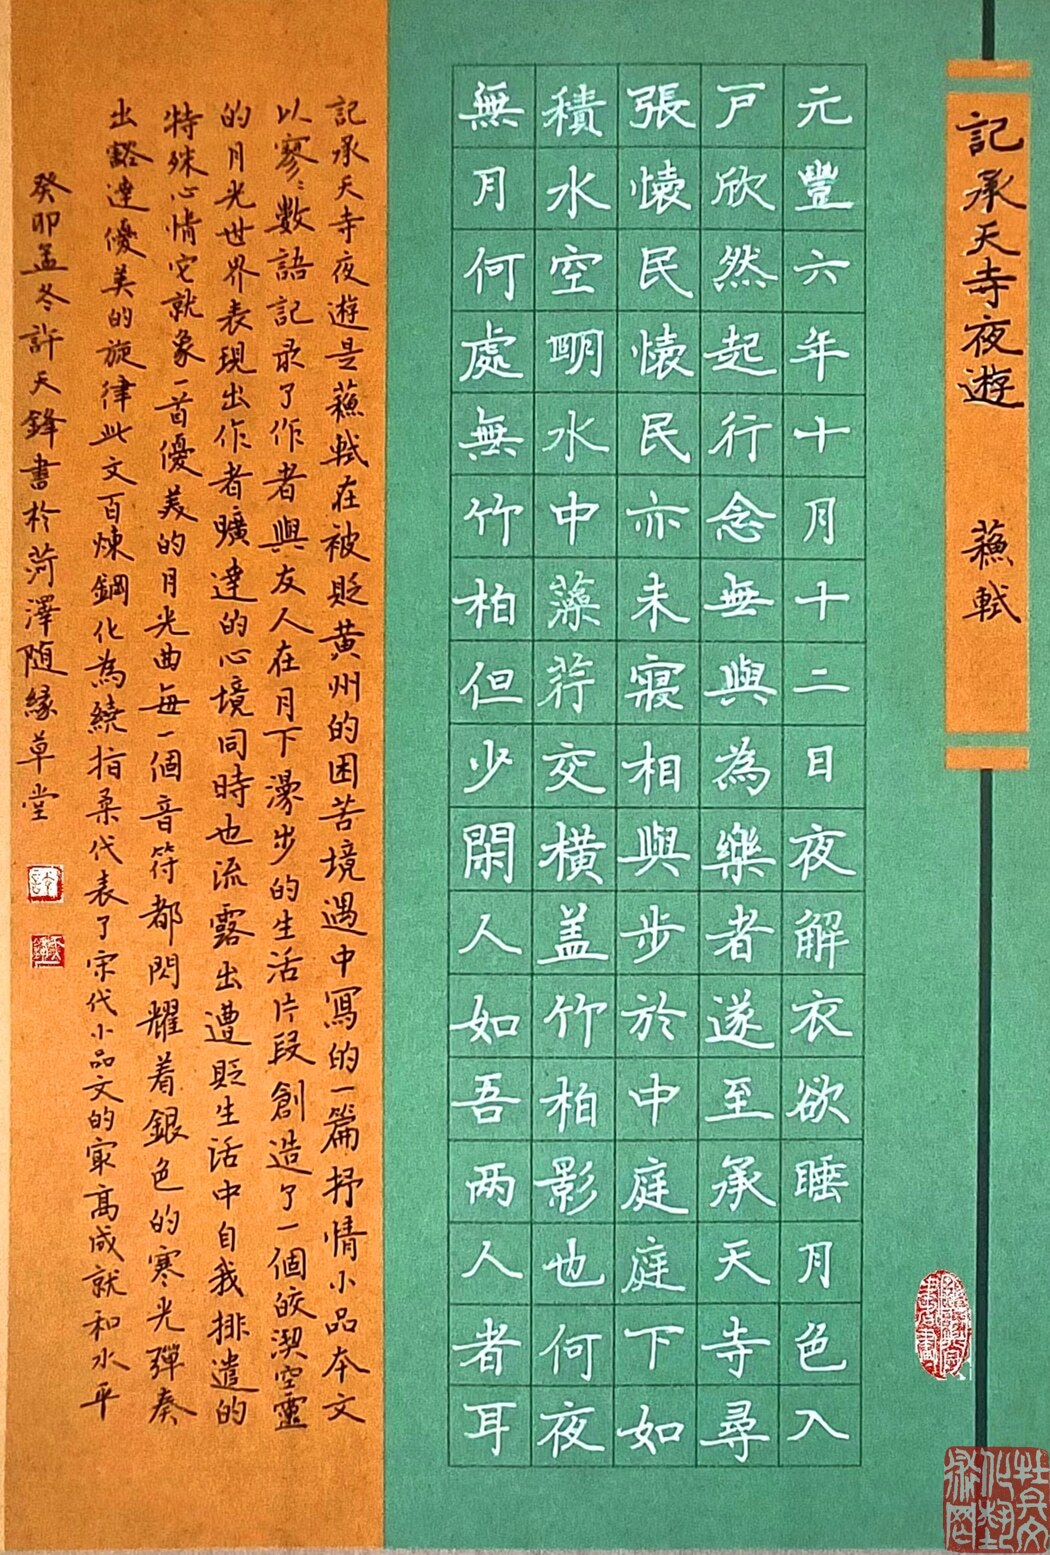 記承天寺夜遊 蘓軾
元豐六年十月十二日夜解衣欲睡月色入
戶欣然起行念無與為樂者遂至承天寺尋
張懷民懷民亦未寢相與步於中庭庭下如
積水空明水中藻荇交橫蓋竹柏影也何夜
無月何處無竹柏但少閑人如吾两人者耳
記承天寺夜遊是蘓軾在被貶黄州的困苦境遇中寫的一篇抒情小品本文
以寥寥數語記录了作者與友人在月下漫步的生活片段創造了一個皎潔空靈
的月光世界表現出作者曠達的心境同時也流露出遭貶生活中自我排遣的
特殊心情它就象一首優美的月光曲每一個音符都閃耀着銀色的寒光彈奏
出豁達優美的旋律此文百煉鋼化為繞指柔代表了宋代小品文的最高成就和水平
癸卯孟冬許天鋒書於菏澤随緣草堂